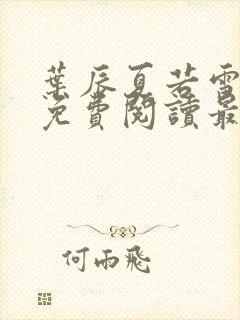 葉辰夏若雪
免費閱讀最
何雨飛